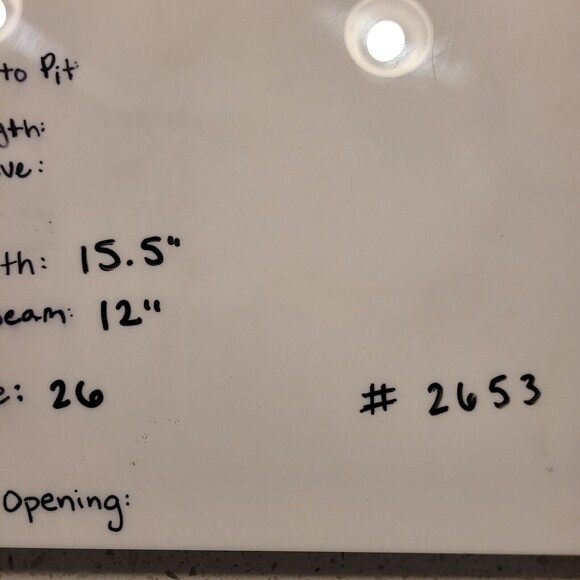 to Pit
gth:
ve:
th: 15.5"
eam: 12"
e: 26 # 2653
Opening: